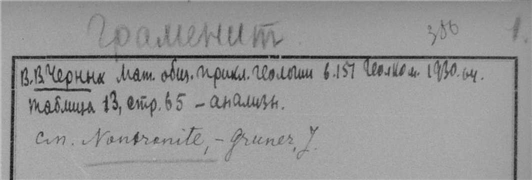 Граменит. 386 1.
В.В Черных Мат. общ. прикл. геологии в. 151 Геолком. 1930.
таблица 13, стр. 65 – анализы.
см. Nontronite, – Gruner, J.